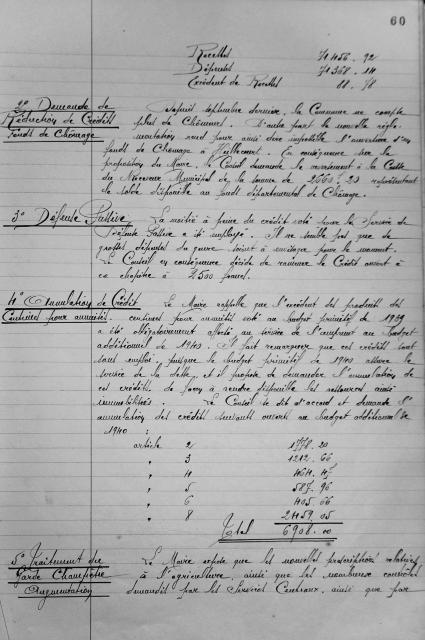 60
Recettes 71456.92
Dépenses 71368.14
Excédent de Recettes 88.78
2° Demande de
Réduction de Crédit
Fonds de Chômage
Depuis septembre dernier, la Commune ne compte
plus de Chômeurs. D'autre part la nouvelle régle-
mentation rend pour ainsi dire impossible l'ouverture d'un
fonds de Chômage à Hallecourt. En conséquence sur la
proposition du Maire, le Conseil demande le versement à la Caisse
du Receveur Municipal de la somme de 2660.23 représentant
le solde disponible au fonds départemental de Chômage.
3° Défense Passive
La moitié à peine du crédit voté pour le Service de
Défense Passive a été employé. Il ne semble pas que de
grosses dépenses du genre soient à envisager pour le moment.
Le Conseil en conséquence décide de ramener le Crédit ouvert à
ce chapitre à 2500 francs.
4° Annulation de Crédit
Centimes pour annuités
Le Maire rappelle que l'excédent des produits des
centimes pour annuités voté au budget primitif de 1939
a été obligatoirement affecté au service de l'emprunt au budget
additionnel de 1940. Il fait remarquer que ces crédits sont
sans emploi, puisque le budget primitif de 1940 assure le
service de la dette, et il propose de demander l'annulation de
ces crédits de façon à rendre disponible les ressources ainsi
immobilisées. Le Conseil se dit d'accord et demande l'
annulation des crédits suivants ouverts au budget additionnel de
1940 :
article 2 1778.20
" 3 1212.66
" 4 464.47
" 5 587.96
" 6 405.66
" 8 2459.05
Total 6908.00
5° Traitement du
Garde Champêtre
Augmentation
Le Maire expose que les nouvelles prescriptions relatives
à l'agriculture, ainsi que les nombreux contrôles
demandés par les Services Centraux, ainsi que par